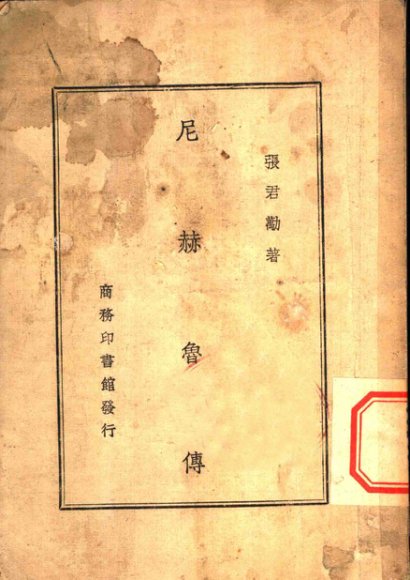 張君勱著
尼赫魯傳
商務印書館發行